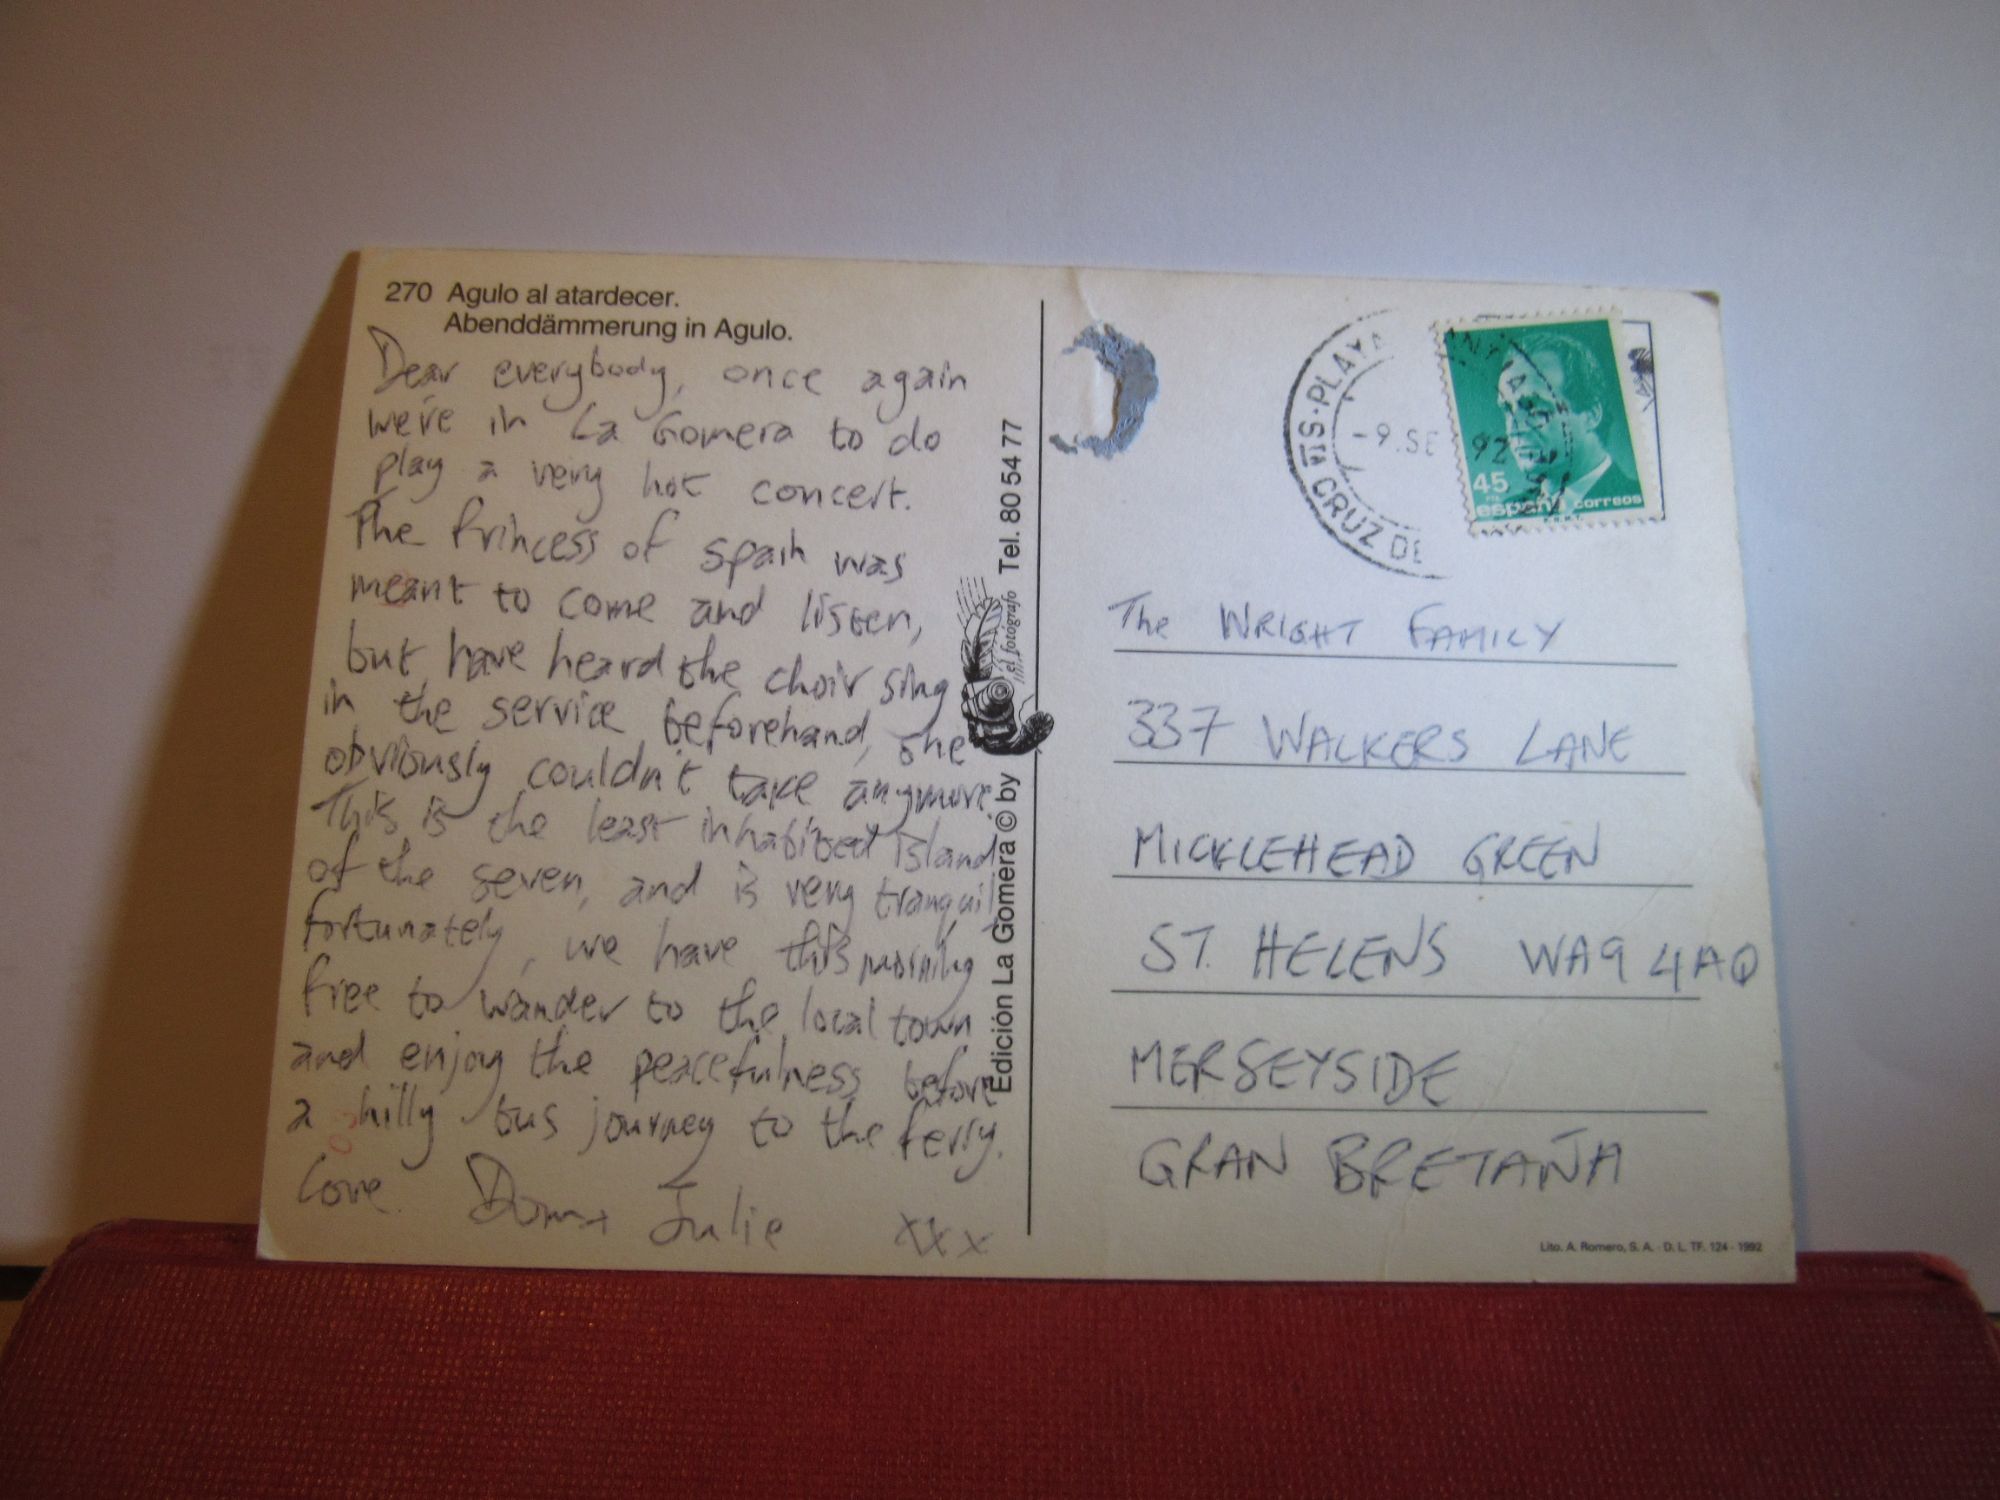 270 Agulo al atardecer.
Abenddämmerung in Agulo.
Dear everybody, once again
we're in La Gomera to do
play a very hot concert.
The Princess of Spain was
meant to come and listen,
but, have heard the choir sing
in the service beforehand, she
obviously couldn't take anymore.
This is the least inhabited island
of the seven, and is very tranquil,
fortunately, we have this morning
free to wander to the local town
and enjoy the peacefulness before
a hilly bus journey to the ferry.
Love Dom + Julie xxx
Edición La Gomera © by el fotógrafo Tel. 80 54 77
CRUZ DE
HTS·PLAYA
-9.SE 92
45
PTA
españa correos
The WRIGHT FAMILY
337 WALKERS LANE
MICKLEHEAD GREEN
ST. HELENS WA9 4AQ
MERSEYSIDE
GRAN BRETAÑA
Lito. A. Romero, S. A. - D. L. TF. 124 - 1992